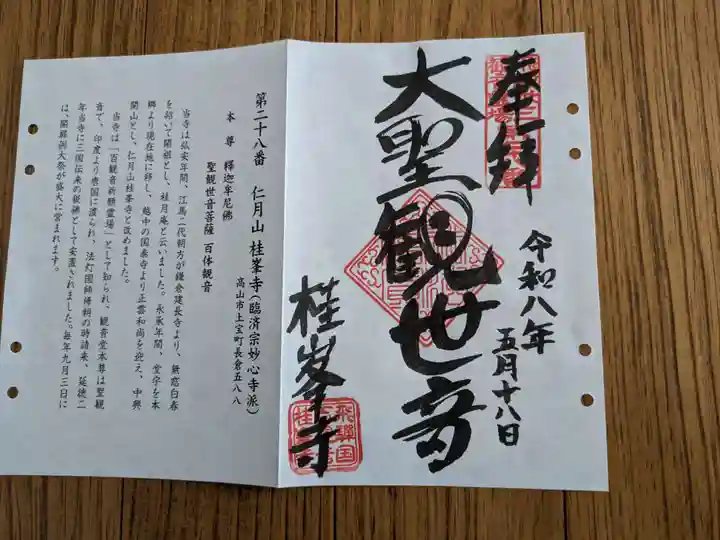 奉拝
大聖観世音
令和八年
五月十八日
桂峯寺
飛騨国
第二十八番 仁月山 桂峯寺(臨済宗妙心寺派)
高山市上宝町長倉五八八
本尊 釋迦牟尼佛
聖観世音菩薩 百体観音
当寺は弘安年間、江馬二代朝方が鎌倉建長寺より、無窓白春
を招いて開祖とし、桂月庵と云いました。永承年間、堂宇を本
郷より現在地に移し、越中の国泰寺より正雲和尚を迎え、中興
開山とし、仁月山桂峯寺と改めました。
当寺は「百観音祈願霊場」として知られ、観音堂本尊は聖観
音で、印度より唐国に渡られ、法灯国師帰朝の時請来、延徳二
年当寺に三国伝来の秘佛として安置されました。毎年九月三日に
は、開扉例大祭が盛大に営まれます。